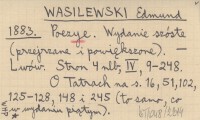 WASILEWSKI Edmund
1883. Poezye. Wydanie szóste
(przejrzane i powiększone). —
Lwów. Stron 4 nlb, IV, 9-248.
O Tatrach na s. 16, 51, 102,
125-128, 148 i 245 (to samo, co
w wydaniu piątym).
WHP